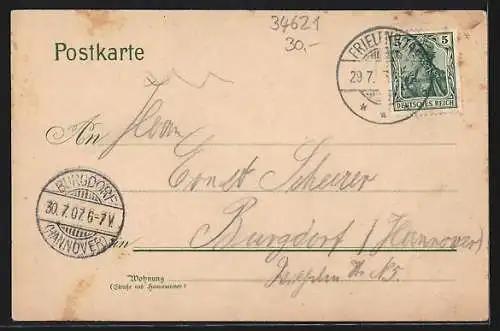 34621
30.-
Postkarte
5
DEUTSCHES REICH
29.7.
An Herrn
Ernst Scheerer
BURGDORF
30.7.07.6-7V.
(HANNOVER)
in Burgdorf (Hannover)
Wilhelm Str. No 5.
Wohnung
(Straße und Hausnummer)